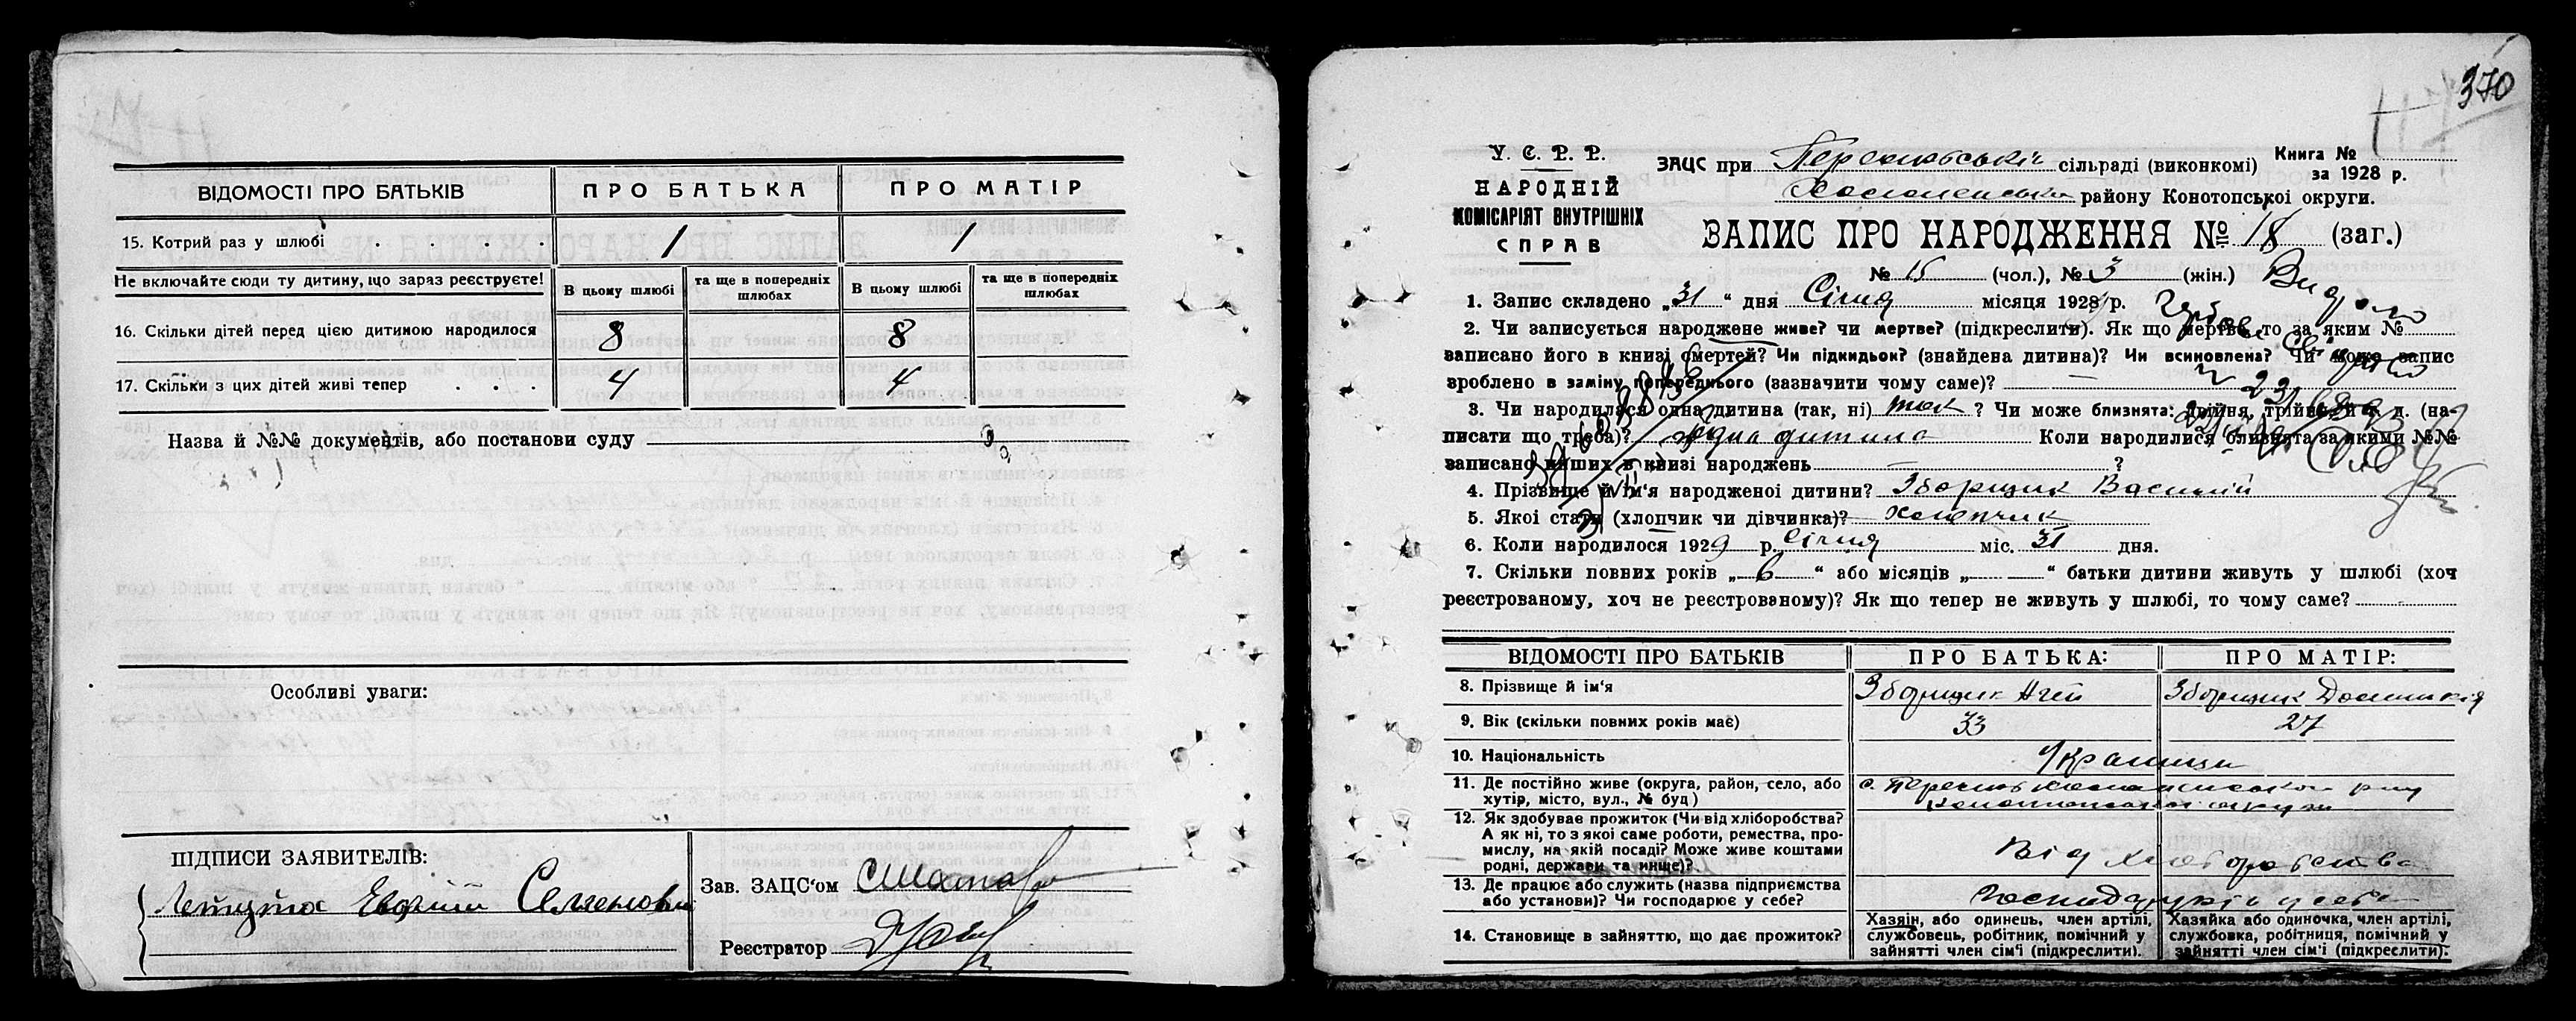 ВІДОМОСТІ ПРО БАТЬКІВ ПРО БАТЬКА ПРО МАТІР
15. Котрий раз у шлюбі 1 1
Не включайте сюди ту дитину, що зараз реєструєте! В цьому шлюбі та ще в попередніх шлюбах В цьому шлюбі та ще в попередніх шлюбах
16. Скільки дітей перед цією дитиною народилося 8 8
17. Скільки з цих дітей живі тепер 4 4
Назва й №№ документів, або постанови суду
Особливі уваги:
ПІДПИСИ ЗАЯВИТЕЛІВ:
Семенович
Зав. ЗАЦС'ом
Реєстратор
370
У. С. Р. Р.
НАРОДНІЙ
КОМІСАРІЯТ ВНУТРІШНІХ
СПРАВ
ЗАЦС при сільраді (виконкомі) Книга №
за 1928 р.
району Конотопської округи.
ЗАПИС ПРО НАРОДЖЕННЯ № 18 (заг.)
№ 15 (чол.), № 3 (жін.)
1. Запис складено „31" дня Січня місяця 1928 р.
2. Чи записується народжене живе? чи мертве? (підкреслити). Як що мертве, то за яким №
записано його в книзі смертей? Чи підкидьок? (знайдена дитина)? Чи всиновлена? Чи може запис
зроблено в заміну попереднього (зазначити чому саме)?
3. Чи народилася одна дитина (так, ні) так ? Чи може близнята: двійня, трійня й т. д. (на-
писати що треба)? одна дитина Коли народилися близнята за якими №№
записано инших в книзі народжень ?
4. Прізвище й ім'я народженої дитини? Зборщик Василій
5. Якої стати (хлопчик чи дівчинка)? хлопчик
6. Коли народилося 1929 р. Січня міс. 31 дня.
7. Скільки повних років „6" або місяців „—" батьки дитини живуть у шлюбі (хоч
реєстрованому, хоч не реєстрованому)? Як що тепер не живуть у шлюбі, то чому саме?
ВІДОМОСТІ ПРО БАТЬКІВ ПРО БАТЬКА: ПРО МАТІР:
8. Прізвище й ім'я Зборщик Агей Зборщик
9. Вік (скільки повних років має) 33 27
10. Національність Українці
11. Де постійно живе (округа, район, село, або
хутір, місто, вул., № буд)
12. Як здобуває прожиток (Чи від хліборобства?
А як ні, то з якої саме роботи, ремества, про-
мислу, на якій посаді? Може живе коштами
родні, держави та инще)? Від хліборобства
13. Де працює або служить (назва підприємства
або установи)? Чи господарює у себе? Господарує у себе
14. Становище в зайняттю, що дає прожиток?
Хазяін, або одинець, член артілі,
службовець, робітник, помічний у
зайнятті член сім'ї (підкреслити).
Хазяйка або одиночка, член артілі,
службовка, робітниця, помічний у
зайнятті член сім'ї (підкреслити).